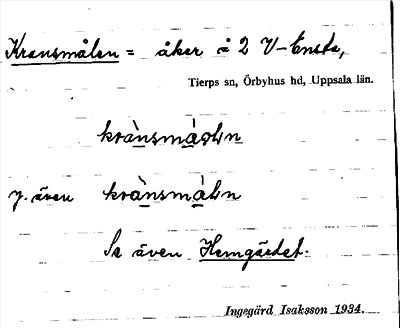 Kransmålen = åker å 2 V-Ensta,
Tierps sn, Örbyhus hd, Uppsala län.
krànsmàln
j. även krànsmàln
Se även Hemgärdet.
Ingegärd Isaksson 1934.